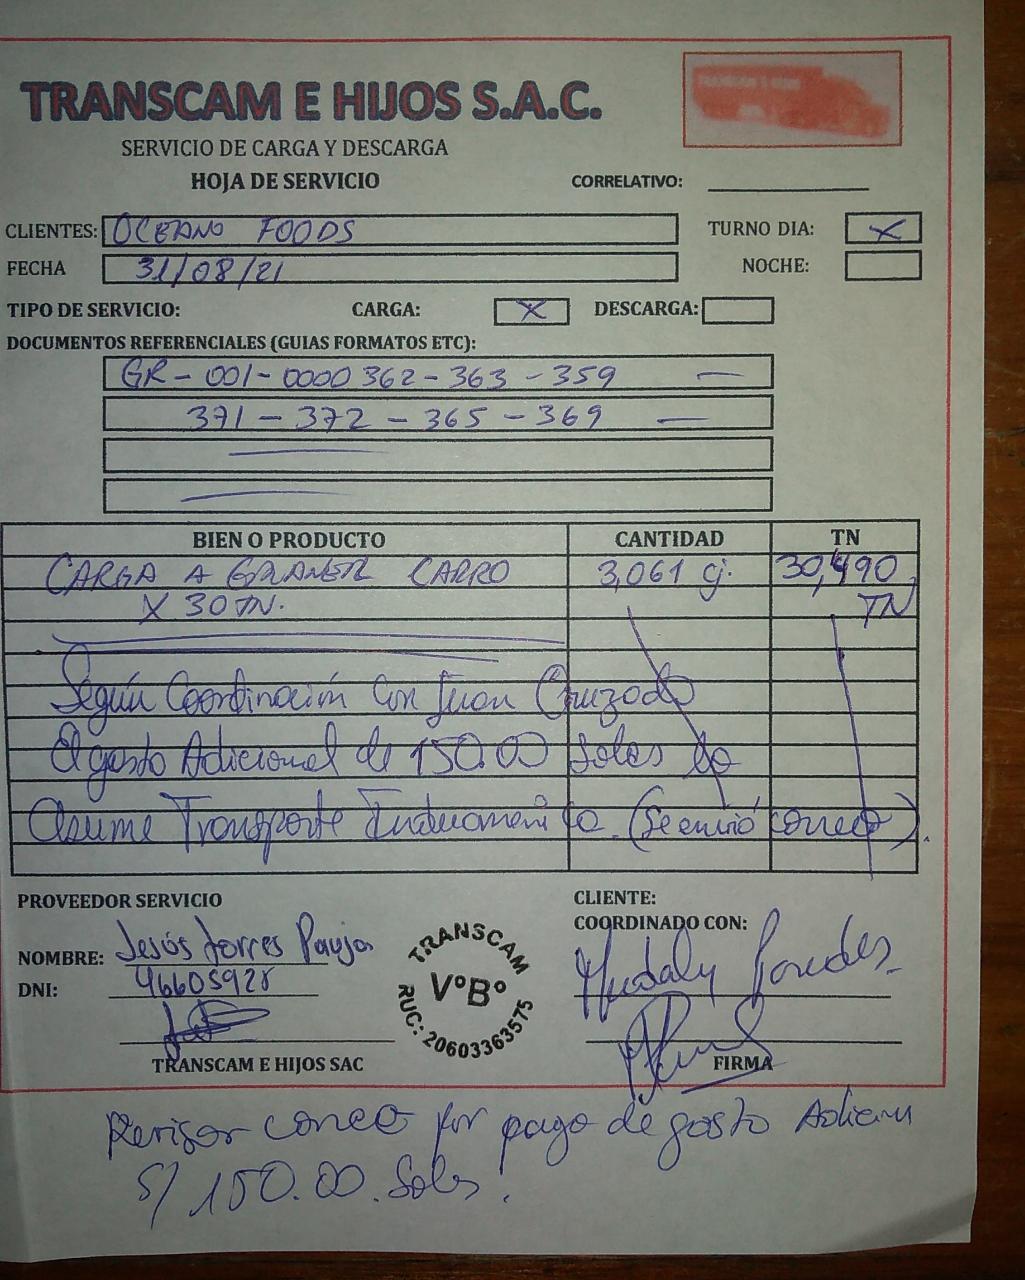 TRANSCAM E HIJOS S.A.C.
SERVICIO DE CARGA Y DESCARGA
HOJA DE SERVICIO
CORRELATIVO:
CLIENTES: OCEANO FOODS
TURNO DIA: X
FECHA 31/08/21
NOCHE:
TIPO DE SERVICIO: CARGA: X DESCARGA:
DOCUMENTOS REFERENCIALES (GUIAS FORMATOS ETC):
GR-001-0000362-363-359 —
371-372-365-369 —
BIEN O PRODUCTO CANTIDAD TN
CARGA A GRANER CARRO 3,061 cj. 30,490
X 30 TN. TN
Según Coordinación Con Juan Cruzado
El gasto Adicional de 150.00 Soles lo
Asume Transporte (Se envió correo).
PROVEEDOR SERVICIO
CLIENTE:
COORDINADO CON:
NOMBRE: Jesús Torres
DNI: 46605928
Paredes
TRANSCAM
V°B°
RUC: 20603363575
TRANSCAM E HIJOS SAC
FIRMA
Revisar correo por pago de gasto
S/ 150.00 Soles.